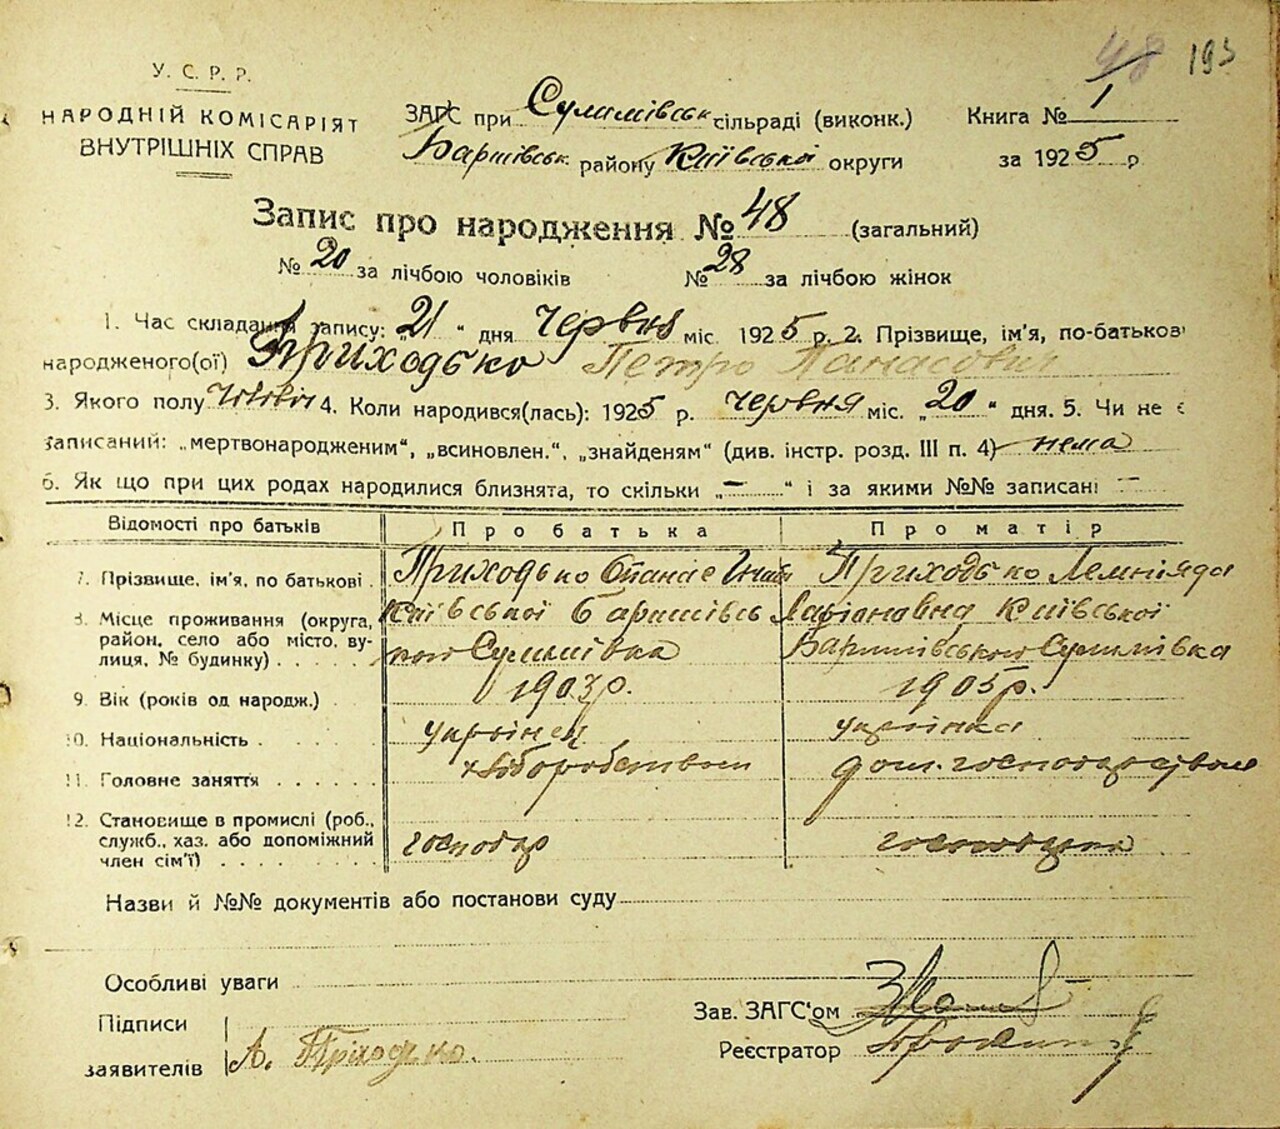 48 193
У. С. Р. Р.
НАРОДНІЙ КОМІСАРІЯТ
ВНУТРІШНІХ СПРАВ
ЗАГС при Сулимівськ сільраді (виконк.)
Баришівськ. району Київської округи
Книга № 1
за 1925 р
Запис про народження № 48 (загальний)
№ 20 за лічбою чоловіків № 28 за лічбою жінок
1. Час складання запису: „21“ дня Червня міс. 1925 р. 2. Прізвище, ім'я, по-батькові
народженого(ої) Приходько Петро Панасович
3. Якого полу чоловіч 4. Коли народився(лась): 1925 р. червня міс. „20“ дня. 5. Чи не є
записаний: „мертвонародженим“, „всиновлен.“, „знайденям“ (див. інстр. розд. III п. 4) нема
6. Як що при цих родах народилися близнята, то скільки „—“ і за якими №№ записані —
Відомості про батьків Про батька Про матір
7. Прізвище, ім'я, по батькові . Приходько Опанас Приходько
8. Місце проживання (округа, район, село або місто, вулиця, № будинку) . . . . . Київської Баришівськ Київської
кої Сулимівка Баришівської Сулимівка
9. Вік (років од народж.) . 1903 р. 1905 р.
10. Національність . . . . . . українец українка
11. Головне заняття . . . . . . хліборобством дом. господарством
12. Становище в промислі (роб., служб., хаз. або допоміжний член сім'ї) . . . . . . . господар
Назви й №№ документів або постанови суду
Особливі уваги
Підписи
заявителів А. Приходько.
Зав. ЗАГС'ом
Реєстратор